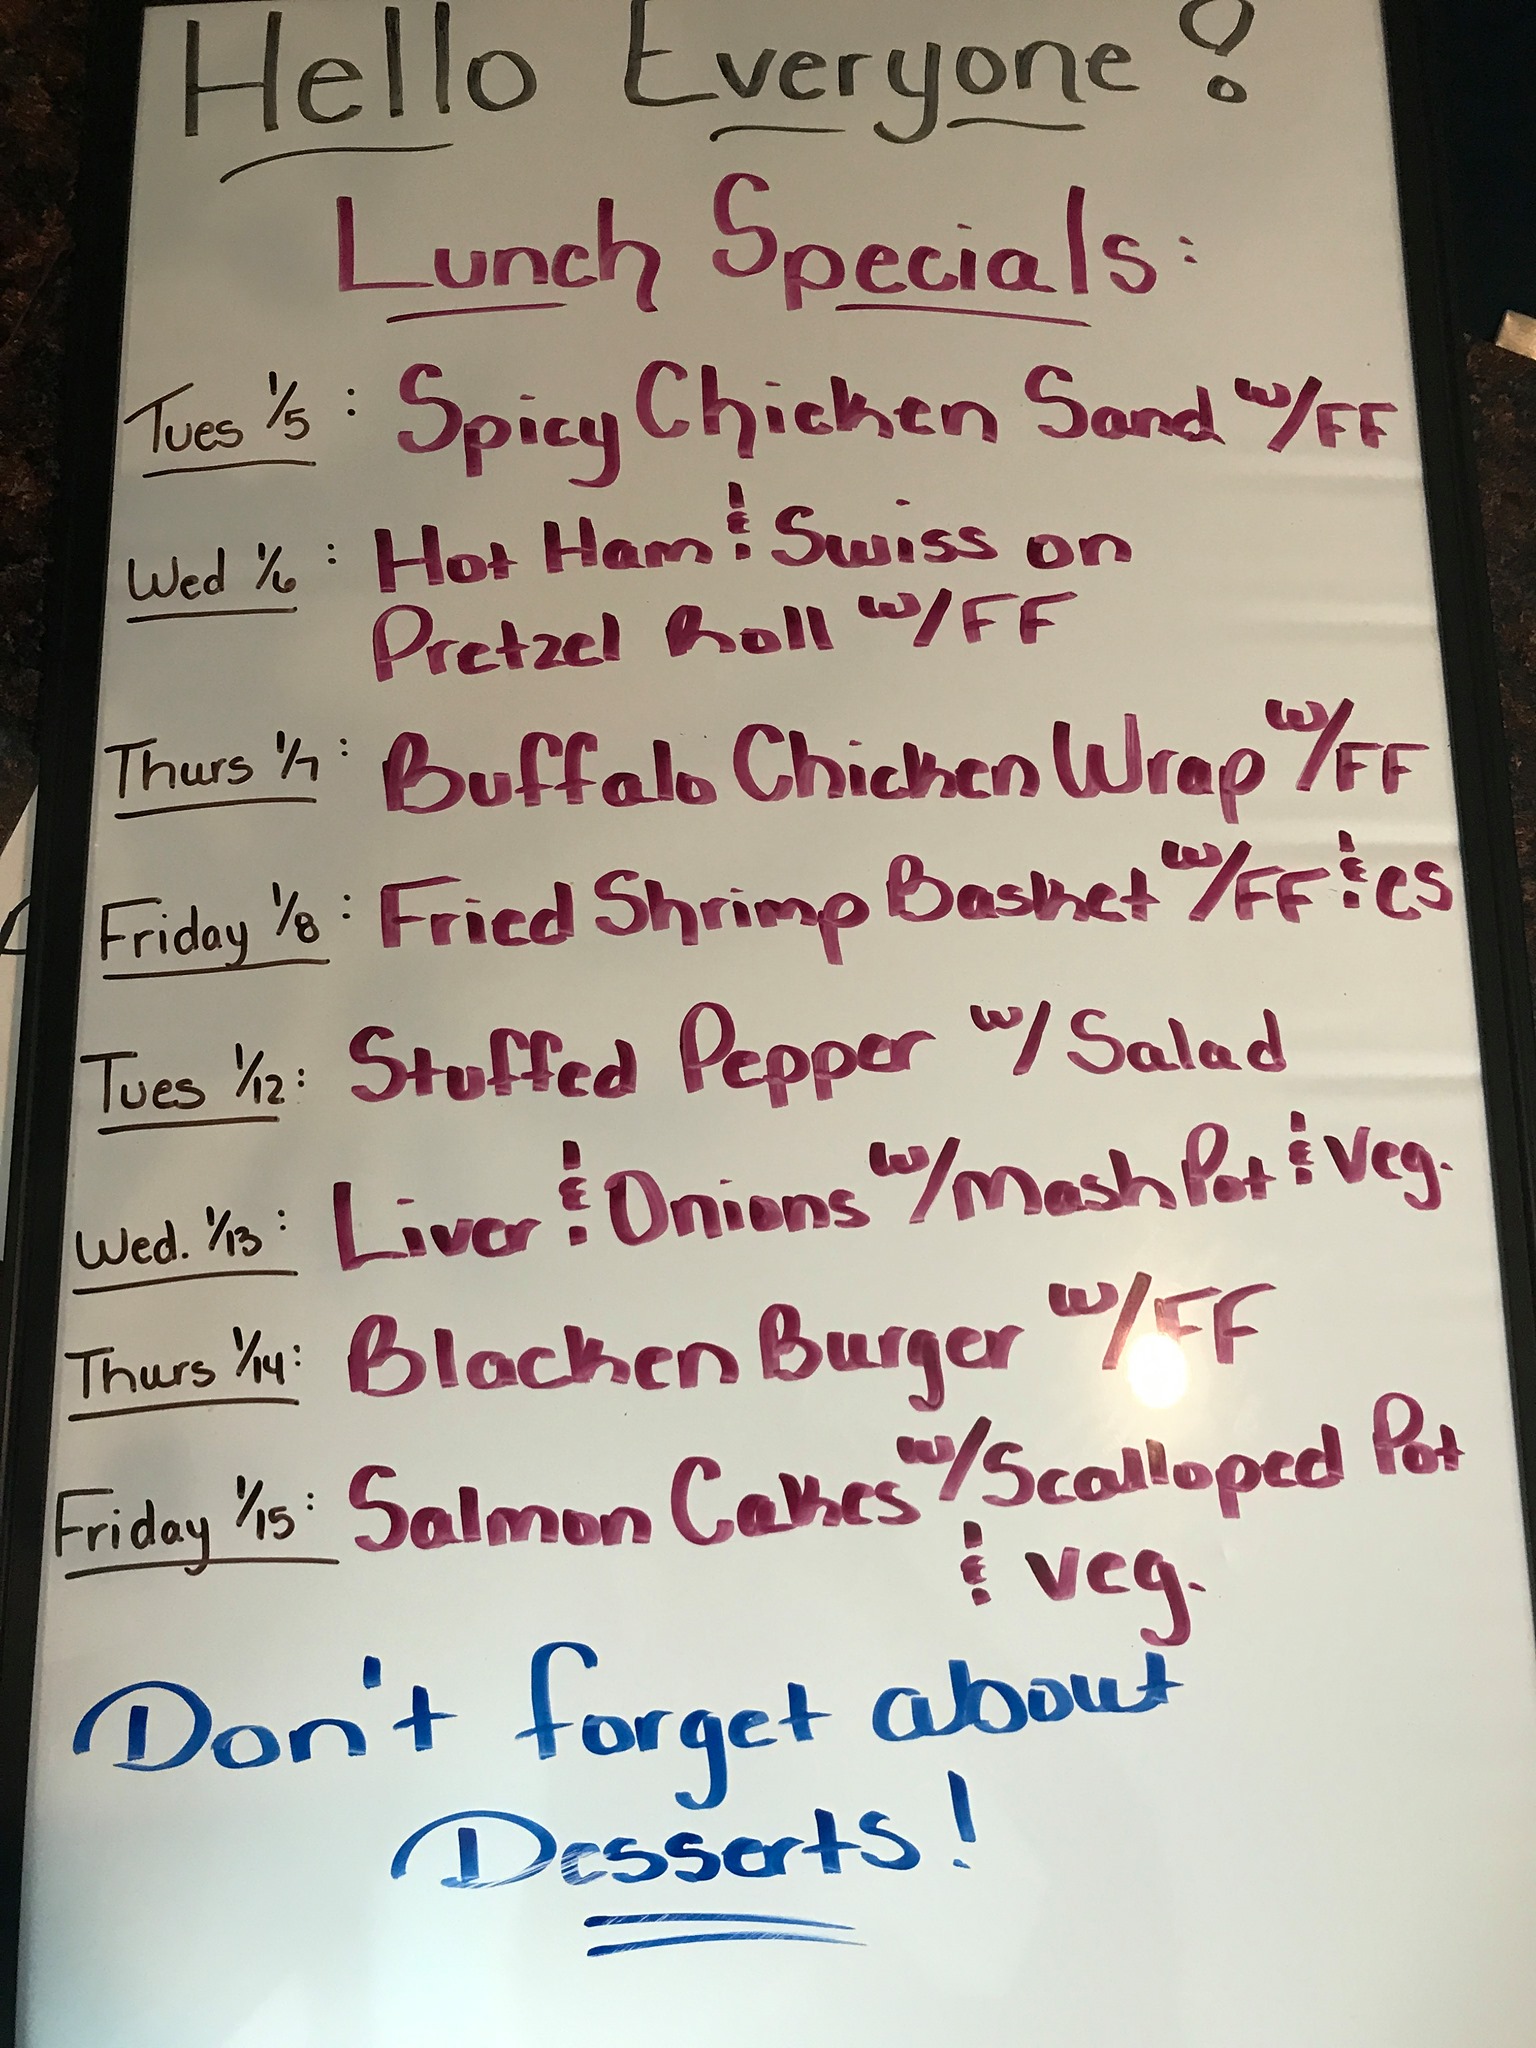 Hello Everyone!
Lunch Specials:
Tues 1/5: Spicy Chicken Sand w/FF
Wed 1/6: Hot Ham & Swiss on
Pretzel Roll w/FF
Thurs 1/7: Buffalo Chicken Wrap w/FF
Friday 1/8: Fried Shrimp Basket w/FF & CS
Tues 1/12: Stuffed Pepper w/ Salad
Wed. 1/13: Liver & Onions w/Mash Pot & Veg.
Thurs 1/14: Blacken Burger w/FF
Friday 1/15: Salmon Cakes w/Scalloped Pot
& veg.
Don't forget about
Desserts!